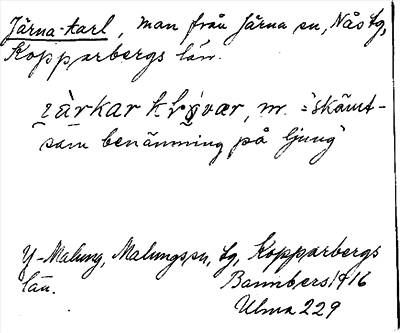 Järna-karl, man från Järna sn, Nås tg,
Kopparbergs län.
m. "skämt-
sam benämning på ljung"
Y-Malung, Malungs sn, tg, Kopparbergs
län. Bannbers 1916
Ulma 229